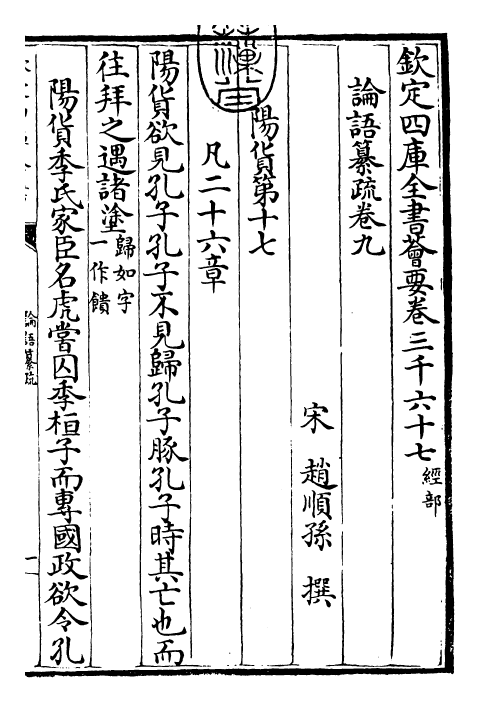 欽定四庫全書薈要卷三千六十七 經部
論語纂疏卷九
宋 趙順孫 撰
陽貨第十七
凡二十六章
陽貨欲見孔子孔子不見歸孔子豚孔子時其亡也而
往拜之遇諸塗歸如字一作饋
陽貨季氏家臣名虎嘗囚季桓子而專國政欲令孔
論語纂疏
一